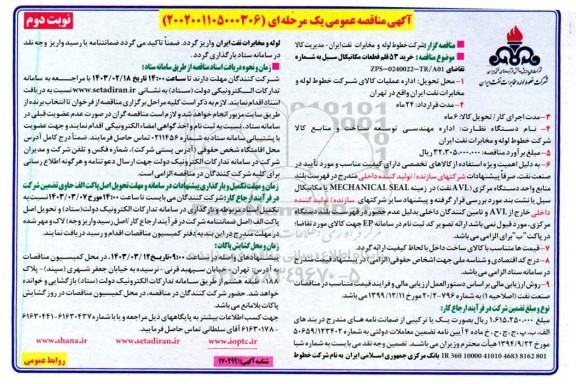 نوبت دوم
آگهی مناقصه عمومی یک مرحله ای (۲۰۰۲۰۰۱۱۰۵۰۰۰۳۰۶)
مناقصه گزار: شرکت خطوط لوله و مخابرات نفت ایران - مدیریت کالا
موضوع مناقصه: خرید ۵۳ قلم قطعات مکانیکال سیل به شماره
تقاضای ZPS-0240022-TR/A01
۱- محل تحویل: اداره عملیات کالای شرکت خطوط لوله و
مخابرات نفت ایران واقع در تهران
۲- مدت قرارداد: ۲۴ ماه
۳- مدت اجرای کار / تحویل کالا: ۶ ماه
۴- نام دستگاه نظارت: اداره مهندسی توسعه ساخت و منابع کالا
شرکت خطوط لوله و مخابرات نفت ایران
۵- مبلغ برآورد مناقصه: ریال
۶- به دلیل اهمیت ویژه استفاده از کالاهای تخصصی دارای کیفیت مناسب و مورد تأیید در
صنعت نفت، صرفاً پیشنهادات شرکتهای سازنده / تولید کننده داخلی مندرج در فهرست بلند
منابع واحد دستگاه مرکزی (AVL نفت) در زمینه MECHANICAL SEAL یا مکانیکال
سیل با نشت بند مورد بررسی قرار گرفته و پیشنهاد سایر شرکتهای سازنده / تولید کننده
داخلی خارج از AVL و تامین کنندگان داخلی بدلیل عدم حضور در فهرست بلند دستگاه
مرکزی، مورد قبول نمی باشد ارائه تصویر کد ثبت نام در سامانه EP جهت کالای مورد تقاضا؛
در پاکت "ب" برای الزامی می باشد.
۷- قیمت ها متناسب با کالای ساخت داخل با لحاظ کیفیت ارائه گردد.
۸- درج کد اقتصادی و شناسه ملی جهت اشخاص حقوقی (الزامی) در پیشنهاد قیمت مندرج
در سامانه ستاد الزامی می باشد.
۹- روش ارزیابی مالی بر اساس دستورالعمل ارزیابی مالی و فرایند قیمت متناسب در مناقصات
صنعت نفت (اصلاحیه ۱) به شماره ۷۹۶-۲۰/۲ مورخ ۱۳۹۹/۱۲/۱۱ می باشد.
نوع و مبلغ تضمین شرکت در فرآیند ارجاع کار:
مبلغ ۱.۶۱۵.۲۵۰.۰۰۰ ریال بصورت یک یا ترکیبی از ضمانت نامه های مندرج در بند های
الف، ب، پ، ج، چ، ح، ماده ۴ آیین نامه تضمین معاملات دولتی به شماره ۱۲۳۴۰۲/ت۵۰۶۵۹ه
مورخ ۱۳۹۴/۹/۲۲ هیأت محترم وزیران. و تضمین وجه نقد می بایست به شماره شبا
IR 360 10000 41010 4683 8162 801 بانک مرکزی جمهوری اسلامی ایران به نام شرکت خطوط
لوله و مخابرات نفت ایران واریز گردد. ضمناً تاکید می گردد ضمانتنامه یا رسید واریز وجه نقد
در سامانه ستاد بارگذاری گردد.
زمان و نحوه دریافت اسناد مناقصه از طریق سامانه ستاد:
شرکت کنندگان مهلت دارند تا ساعت ۱۴:۰۰ تاریخ ۱۴۰۳/۰۲/۱۸ با مراجعه به سامانه
تدارکات الکترونیکی دولت (ستاد)، به نشانی www.setadiran.ir نسبت به دریافت
اسناد اقدام نمایند. لازم به ذکر است کلیه مراحل برگزاری مناقصه از فراخوان تا انتخاب برنده از
طریق سایت مزبور انجام خواهد شد و لازم است مناقصه گران در صورت عدم عضویت قبلی در
سامانه ستاد، نسبت به ثبت نام و اخذ گواهی امضاء الکترونیکی اقدام نمایند و جهت عضویت
با پشتیبانی سامانه ستاد به شماره تماس حاصل فرمایند. ضمناً درج کامل آدرس
محل اقامتگاه شخص حقوقی (آدرس پستی شرکت)، شماره فکس و تلفن شرکت و مدیران
شرکت در سامانه تدارکات الکترونیک دولت جهت ارسال دعوتنامه و هرگونه اطلاع رسانی
برای کلیه شرکت کنندگان در مناقصه الزامی است.
زمان و مهلت تکمیل و بارگذاری پیشنهادات در سامانه و مهلت تحویل اصل پاکت الف حاوی تضمین شرکت
در فرآیند ارجاع کار: شرکت کنندگان می بایست تا ساعت ۱۴:۰۰ مورخ ۱۴۰۳/۰۳/۰۷ نسبت به
تکمیل اسناد مربوطه و بارگذاری در سامانه تدارکات الکترونیک دولت (ستاد) و تحویل اصل
پاکت الف (اصل ضمانتنامه شرکت در فرآیند ارجاع کار، اصل رسید واریز وجه) لاک و مهر شده
در مهلت مندرج در این بند به دفتر کمیسیون مناقصات اقدام و رسید دریافت نمایند.
زمان و محل گشایش پاکات:
پیشنهادهای واصله در ساعت ۰۹:۰۰ تاریخ ۱۴۰۳/۰۳/۱۲، در محل کمیسیون مناقصات
به آدرس: تهران - خیابان سپهبد قرنی - نرسیده به خیابان جعفر شهری (سپند) - پلاک
۱۸۸ طبقه هشتم از طریق سامانه تدارکات الکترونیک دولت (ستاد) بازگشایی و خوانده
خواهد شد. حضور شرکت کنندگان در مناقصه، در محل کمیسیون مناقصات در روز گشایش
پاکات بلامانع می باشد.
جهت کسب اطلاعات بیشتر به پایگاههای ذیل مراجعه و یا با شماره ۶۱۶۳۰۴۳۷-۶۱۶۳۰۴۴۱
۶۱۶۳۰۱۷۸-۰۲۱ آقای سلطانی تماس حاصل فرمایید.
www.shana.ir www.setadiran.ir www.ioptc.ir
شناسه آگهی: ۱۷۰۲۹۹۱
روابط عمومی